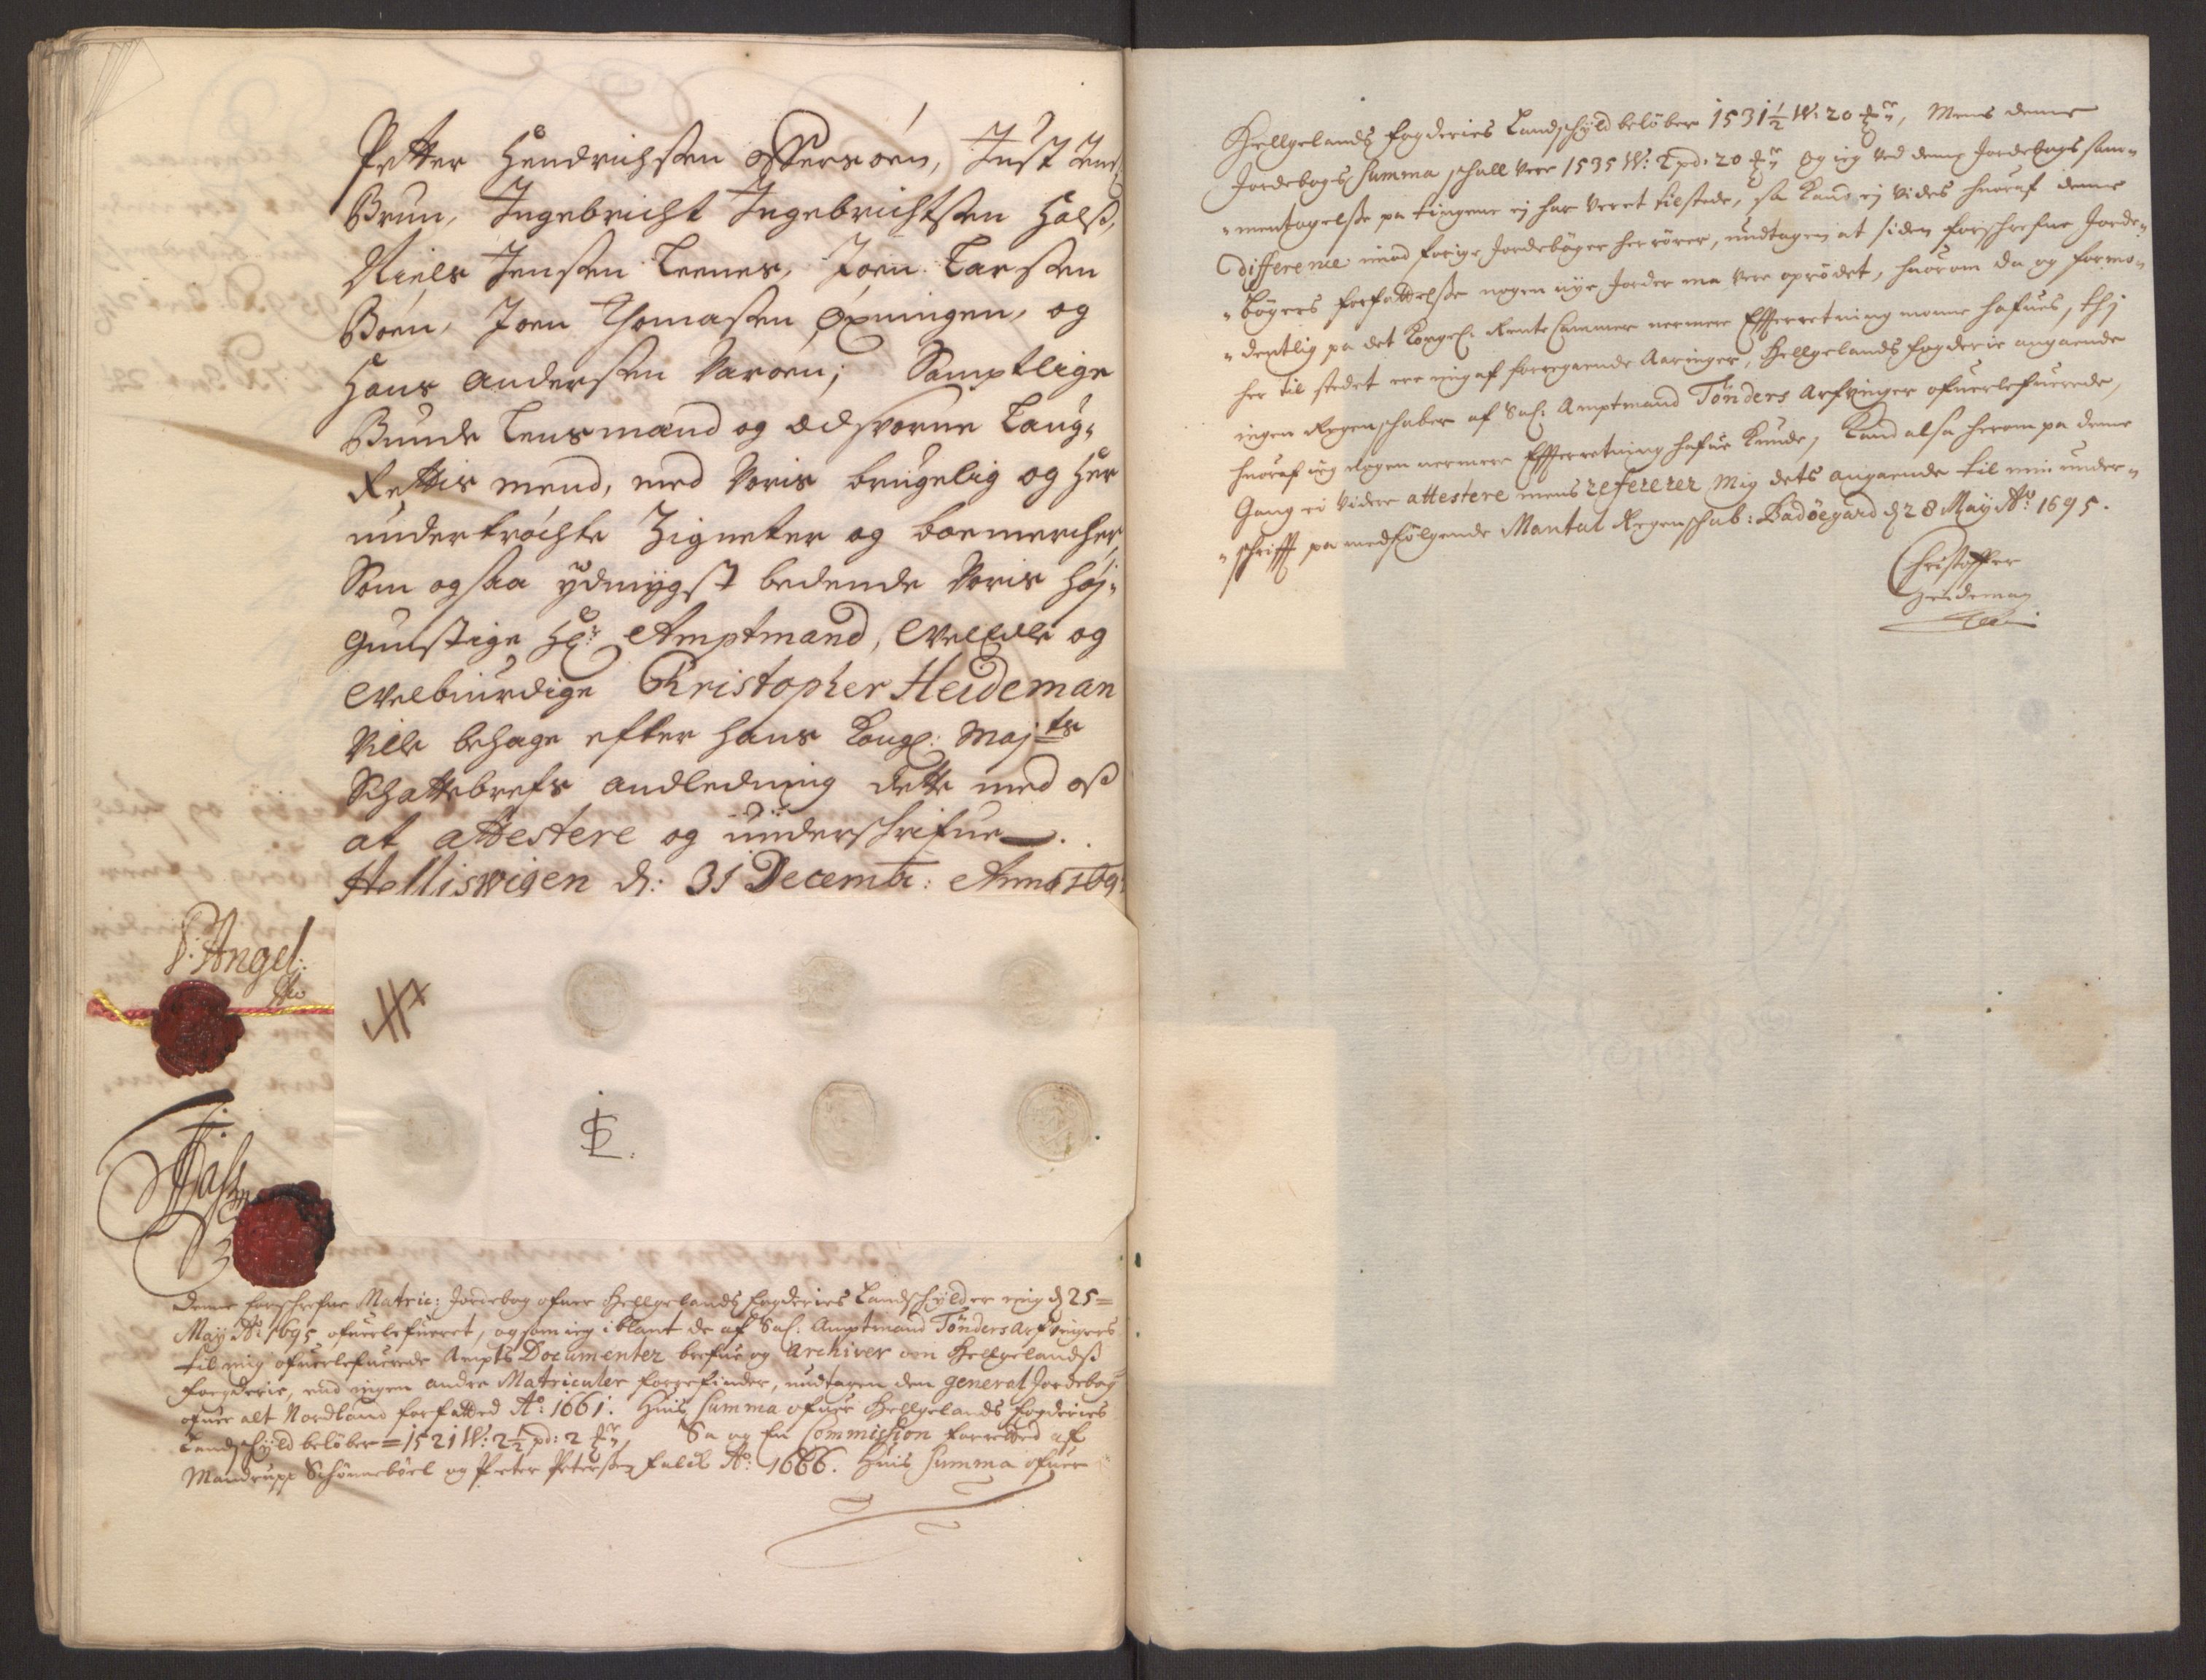 Petter Hendrichsen Offersøen, Just Jens:
Brun, Ingebricht Ingebrichtsen Halß,
Niels Jensen Leenes, Joen Larsen
Boen, Joen Thomasen Øxningen, og
Hans Andersen Varøen; Samptlige
Bunde Lensmænd og Edsvorne Laug-
Rettis mend, med voris brugelig og her
undertröchte Zigneter og boemercher
Som ogsaa ydmygst bedende voris høj-
gunstige Hr: Amptmand, Velædle og
Velbiurdige Christopher Heideman
Ville behage efter hans Kongl: Maj:ts
Schattebrefs andledning dette med oß
at attestere og underschrifue.
Helliswigen d: 31 Decembr: Anno 169
P: Angel:
ILS.
Denne forschrefne Matric: Jordebog ofuer Hellgelands fogderies Landschyld er mig d 25
May Ao 1695 ofuerlefueret, og som ieg iblant de af Sal: Amptmand Tönders Arfvingers
til mig ofuerlefuerede Ampts Documenter brefue og Archiver om Hellgelandß
foegderie, end ingen andre Matriculer forrefinder, undtagen den general Jordebog
ofuer alt Nordland forfatted Ao: 1661. Huis Summa ofuer Hellgelands fogderies
Landschyld beløber = 1521 W: 2½ pd: 2 Sa og En Commission forretted af
Mandrupp Schønnebøel og Peter Petersen Falch Ao: 1666. Huis Summa ofuer
Hellgelands fogderies Landschyld beløber 1531½ W: 20 , Mens denne
Jordebogs Summa schall vere 1535 W: 2 pd: 20 og ieg ved denne Jordebogs sam-
-mentagelse pa tingene ej har veret tilstede, sa kand ej vides huoraf denne
Difference imod forige Jordebøger herrører, undtagen at siden forschrefne Jorde-
-bøgers forfattelse nogen nye Jorder ma vere oprødet, huorom da og formo-
-dentlig pa det Kongel: Rente Cammer nermere Effterretning monne hafues, thj
her til stedet ere mig af forregaende Aaringer, Hellgelands fogderie angaende
ingen Regenschaber af Sal: Amptmand Tönders Arfvinger ofuerlefuerede,
huoraf ieg Nogen nermere Effterretning hafue kunde, kand altsa herom pa denne
Gang ei videre attestere mens refererer mig dets angaende til min under-
-schrifft pa medfølgende Mantal Regenschab: Badøegard d 28 May Ao: 1695.
Christoffer
Heideman